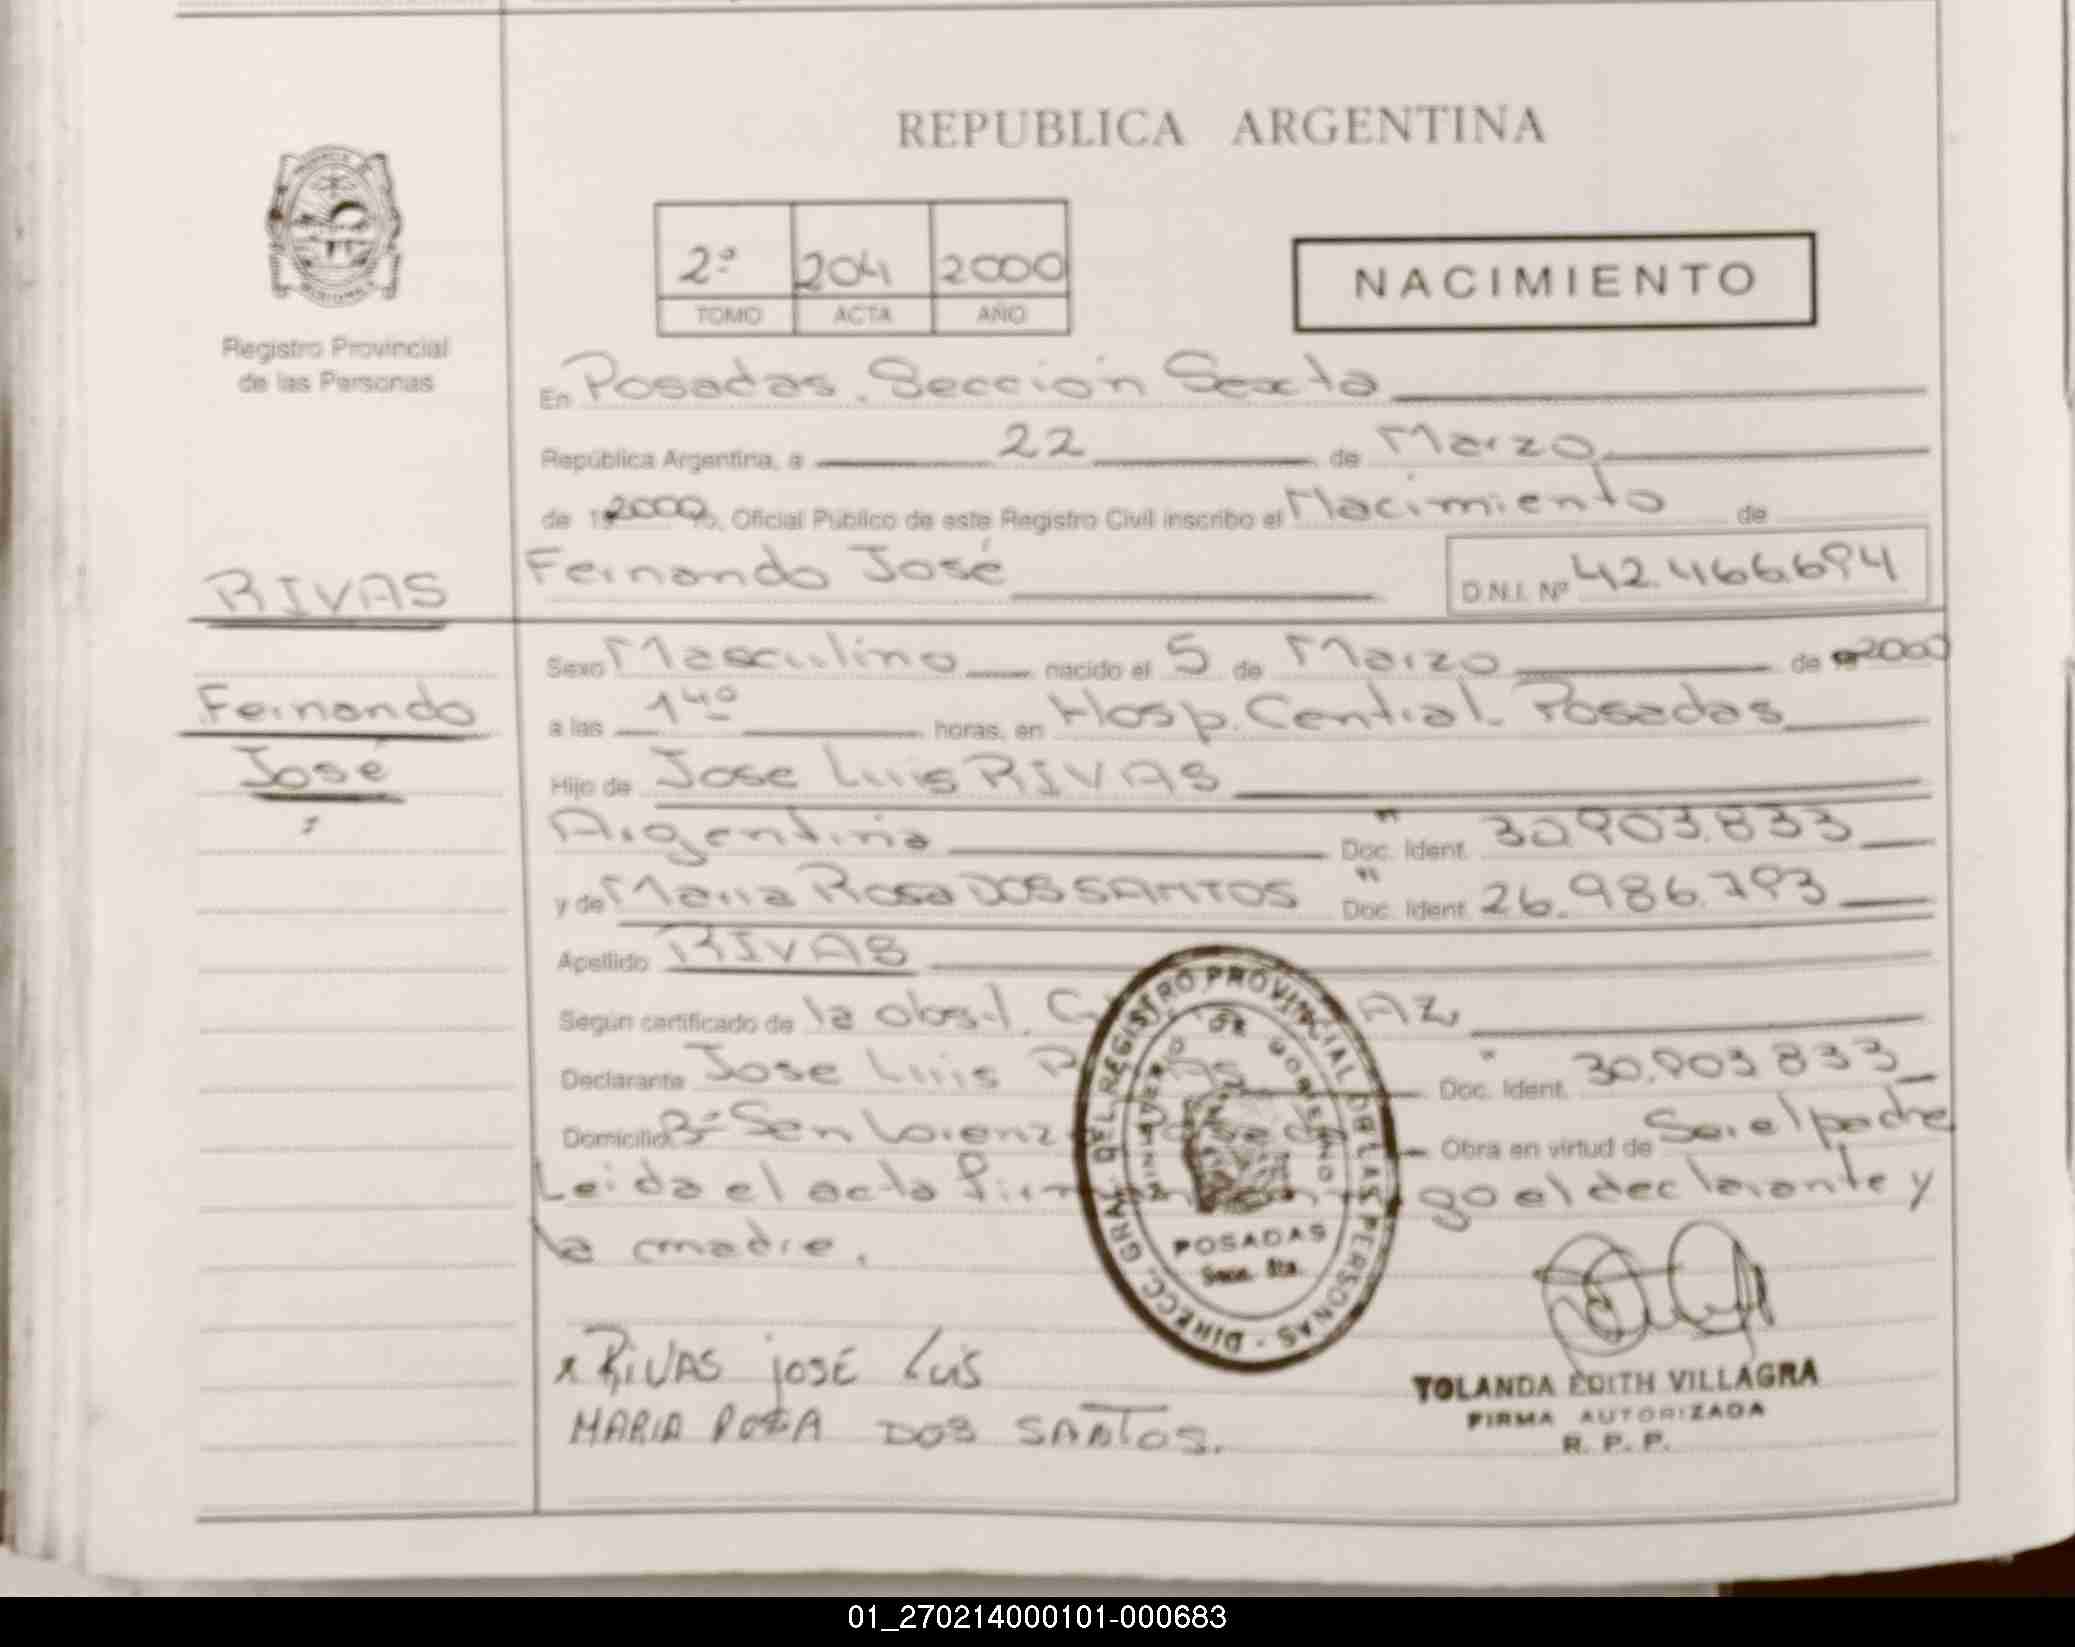 REPUBLICA ARGENTINA
2º 204 2000
TOMO ACTA AÑO
NACIMIENTO
Registro Provincial
de las Personas
En Posadas. Sección Sexta
República Argentina, a 22 de Marzo
de 2000, Oficial Público de este Registro Civil inscribo el Nacimiento de
Fernando José
D.N.I. Nº 42.466.694
RIVAS
Fernando
José
Sexo Masculino nacido el 5 de Marzo de 2000
a las 14º horas, en Hosp. Central. Posadas
Hijo de Jose Luis RIVAS
Argentina Doc. Ident. 30.903.833
y de Maria Rosa DOS SANTOS Doc. Ident. 26.986.793
Apellido RIVAS
Según certificado de la obst.
Declarante Jose Luis Doc. Ident. 30.903.833
Domicilio Bº San Lorenzo Obra en virtud de Ser el padre
Leida el acta el declarante y
la madre.
DIRECC. GRAL. DEL REGISTRO PROVINCIAL DE LAS PERSONAS
MINISTERIO DE GOBIERNO
POSADAS
Secc. 6ta.
x RIVAS JOSÉ LUIS
MARIA ROSA DOS SANTOS.
YOLANDA EDITH VILLAGRA
FIRMA AUTORIZADA
R. P. P.
01_270214000101-000683